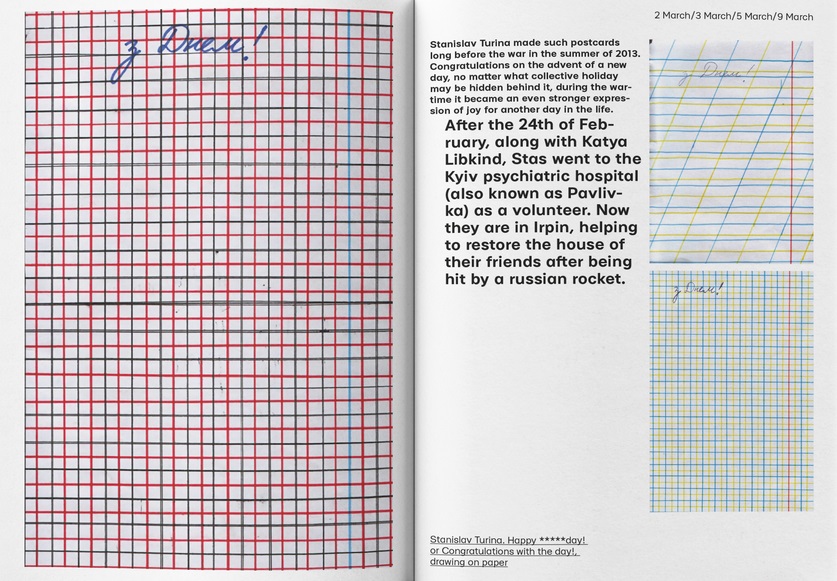 з Днем!
2 March/3 March/5 March/9 March
Stanislav Turina made such postcards
long before the war in the summer of 2013.
Congratulations on the advent of a new
day, no matter what collective holiday
may be hidden behind it, during the war-
time it became an even stronger expres-
sion of joy for another day in the life.
After the 24th of Feb-
ruary, along with Katya
Libkind, Stas went to the
Kyiv psychiatric hospital
(also known as Pavliv-
ka) as a volunteer. Now
they are in Irpin, helping
to restore the house of
their friends after being
hit by a russian rocket.
з Днем!
з Днем!
Stanislav Turina. Happy *****day!
or Congratulations with the day!,
drawing on paper